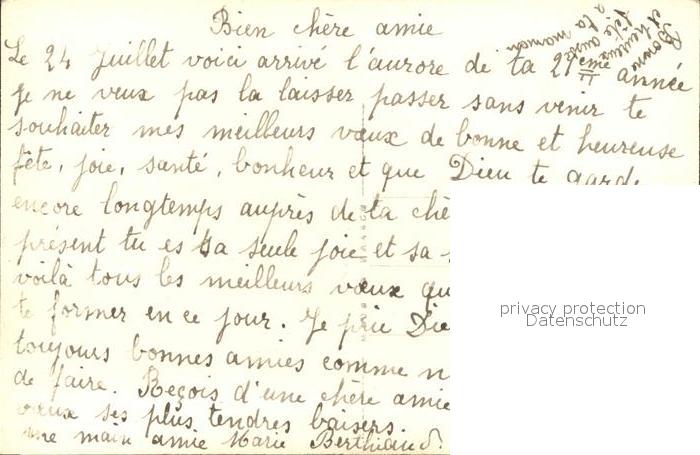 Bien chère amie
Bonne
et heureuse
fête aussi
a ta maman
Le 24 Juillet voici arrivé l'aurore de ta 21ème année
Je ne veux pas la laisser passer sans venir te
souhaiter mes meilleurs vœux de bonne et heureuse
fête, joie, santé, bonheur et que Dieu te garde
encore longtemps auprès de ta chè
présent tu es sa seule joie et sa
voilà tous les meilleurs vœux qu
te former en ce jour. Je prie Die
toujours bonnes amies comme n
de faire. Reçois d'une chère amie
vœux ses plus tendres baisers.
une main amie Marie Berthiaud.
privacy protection
Datenschutz